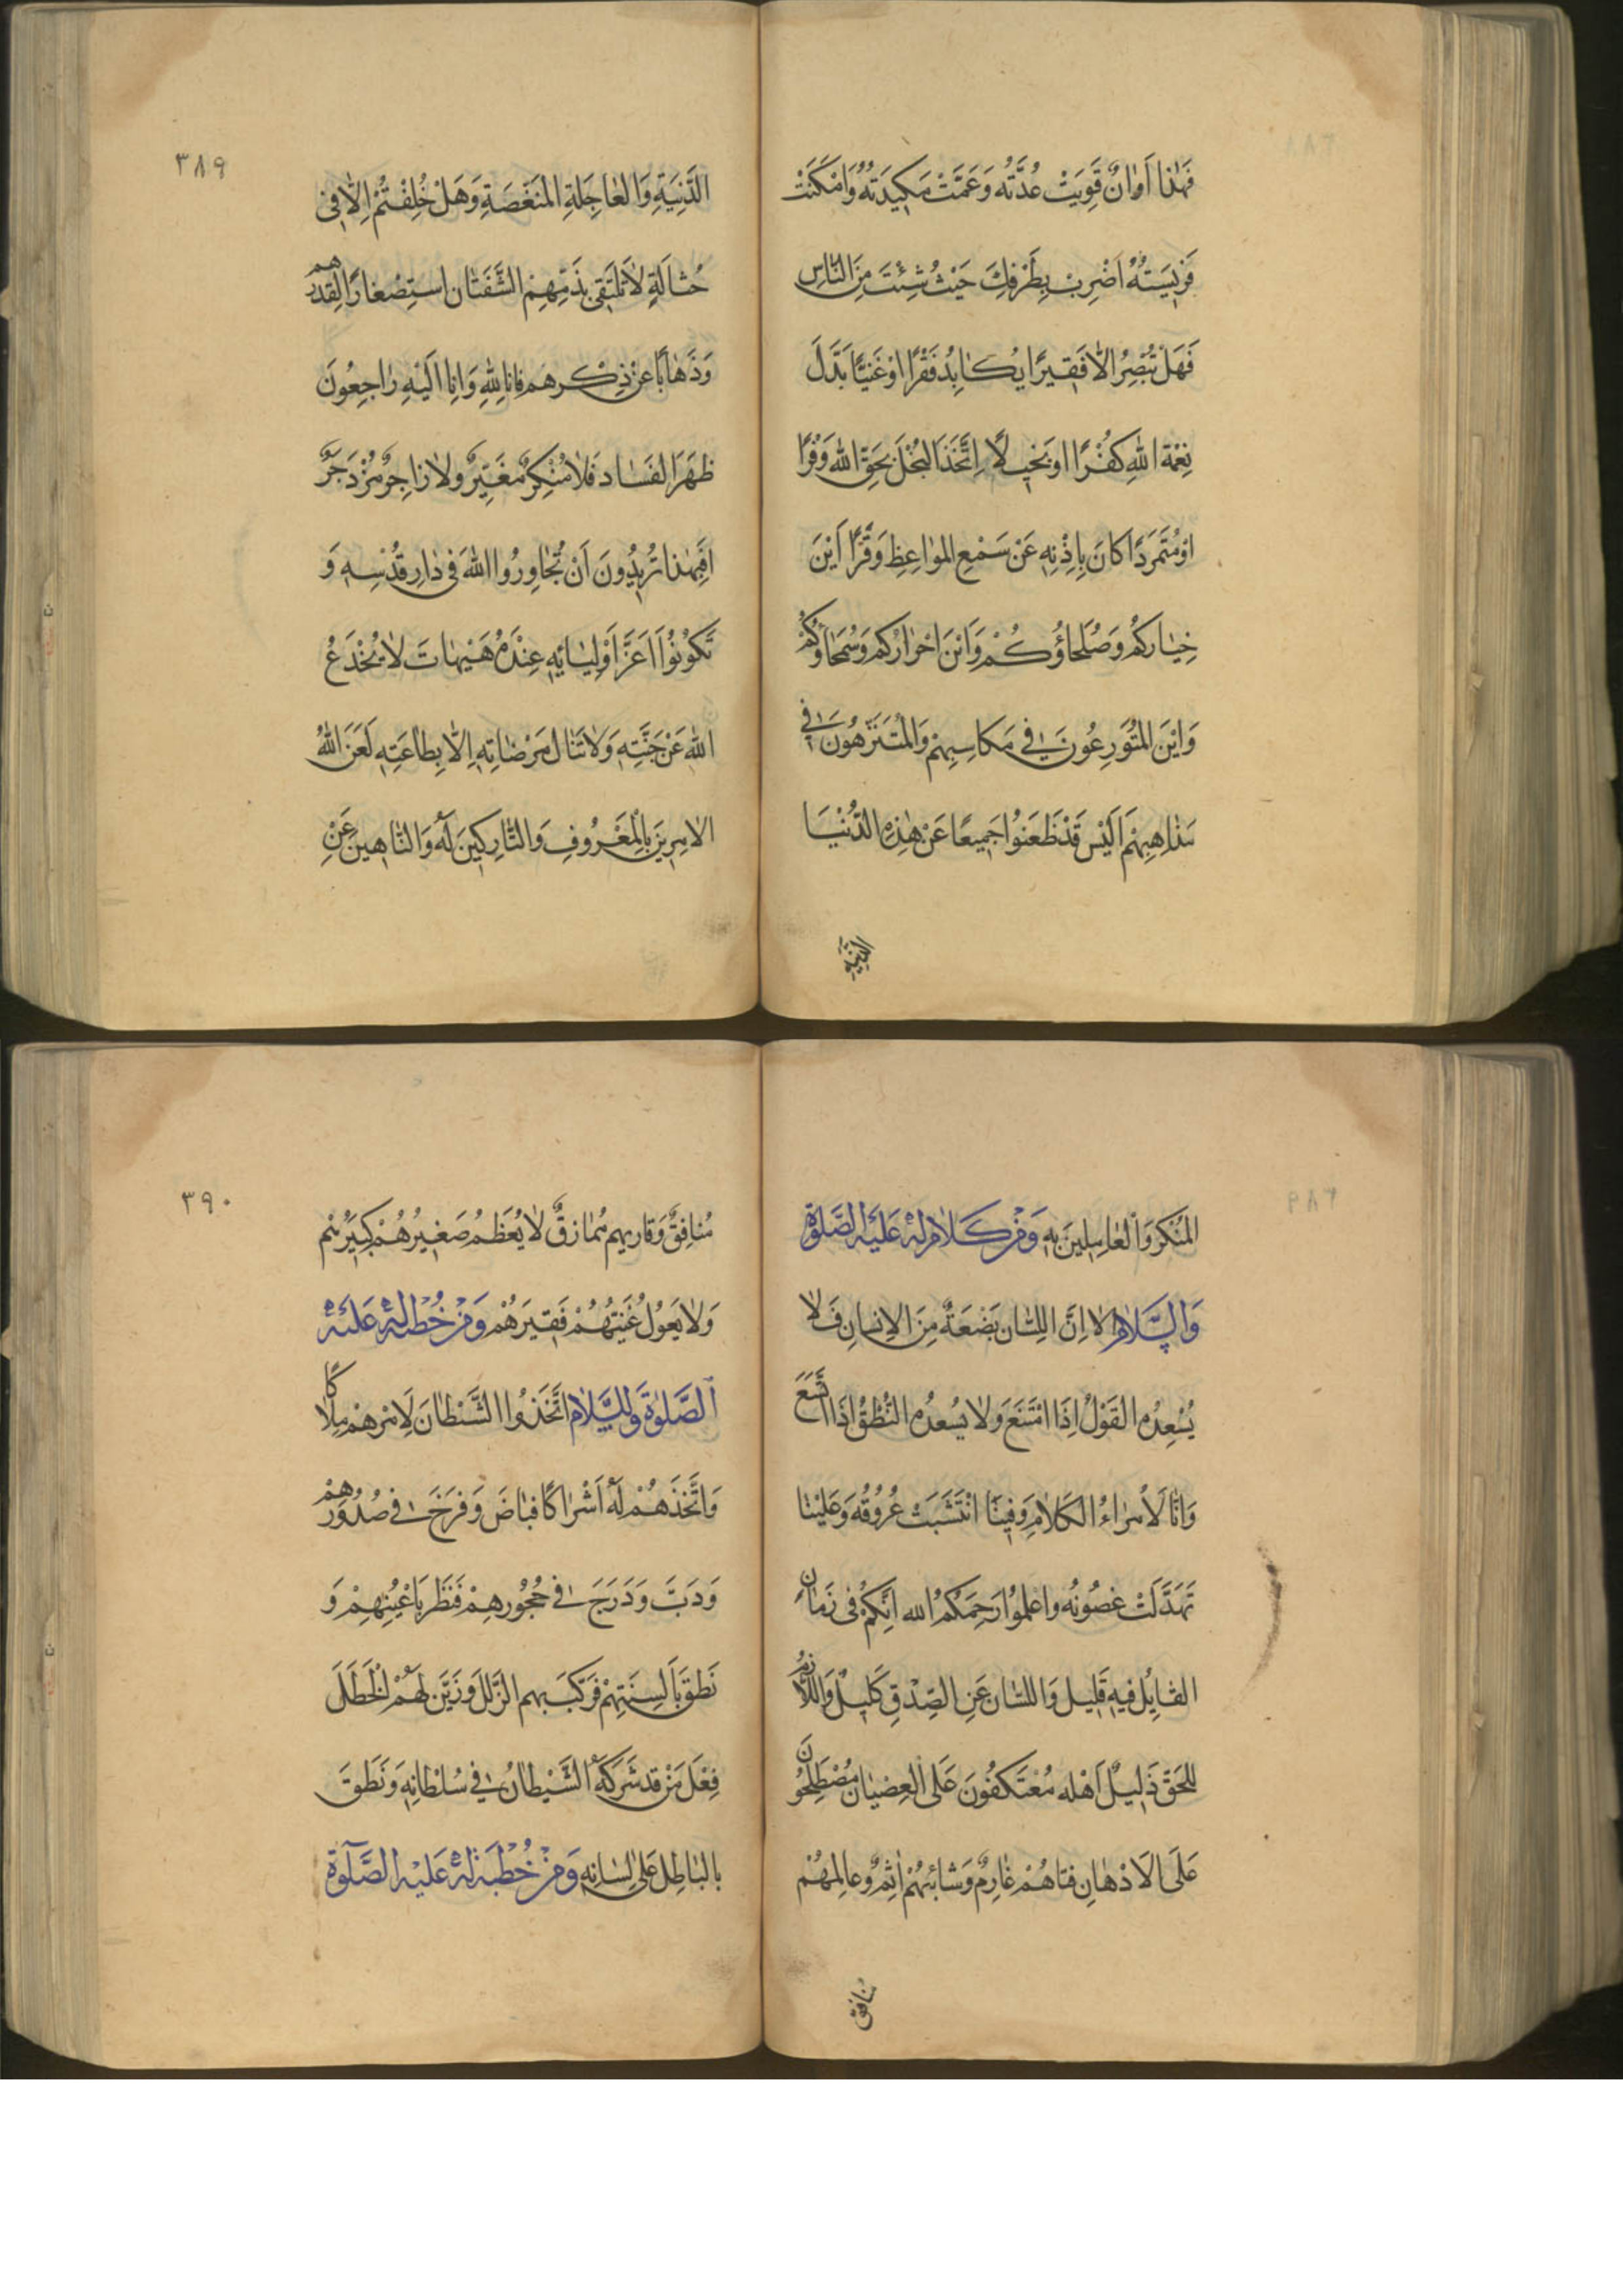 فَهٰذا اَوٰانٌ قَوِيَتْ عُدَّتُه وَعَمَّتْ مَكيدَتُهُ وَاَمْكَنَتْ
فَريسَتُهُ اضْرِبْ بِطَرْفِكَ حَيْثُ شِئْتَ مِنَ النّاسِ
فَهَلْ تُبْصِرُ الّا فَقيرًا يُكابِدُ فَقْرًا اوْ غَنيًّا بَدَّلَ
نِعْمَة اللهِ كُفْرًا او بَخيلًا اِتَّخَذَ البُخْلَ بِحَقِّ اللهِ وَفْرًا
اوْ مُتَمَرِّدًا كانَ بِاِذْنِه عَنْ سَمْعِ المَوٰاعِظِ وَقْرًا اَيْنَ
خِيٰارُكُم وَصُلَحاؤُكُمْ وَاَيْنَ احْرٰارُكُم وَسُمَحاؤُكُمْ
وَايْنَ المُتَوَرِّعُونَ في مَكاسِبِهِمْ وَالمُتَنَزِّهُونَ في
مَذاهِبِهِمْ اَلَيْسَ قَدْ ظَعَنُوا جَميعًا عَنْ هٰذِهِ الدُّنْيَا
الدنيه
٣٨٩
الدَّنِيَّةِ وَالعٰاجِلَةِ المُنَغَّصَةِ وَهَلْ خُلِقْتُمْ اِلّا في
حُثالَةٍ لاٰ تَلْتَقي بِذَمِّهِمْ الشَّفَتٰانِ اسْتِصْغارًا لِقَدْرِهم
وَذَهٰابًا عَنْ ذِكْرِهم فانا لِلّٰهِ وَانا اِلَيْهِ رٰاجِعُونَ
ظَهَرَ الفَسٰاد فَلاٰ مُنْكِرٌ مُغَيِّرٌ ولاٰ زاجِرٌ مُزْدَجِرٌ
افَبِهٰذا تُريدُونَ اَنْ تُجٰاوِرُوا اللهَ في دٰارِ قُدْسِهِ وَ
تَكُونُوا اَعَزَّ اَوْلِيٰائِهِ عِنْدَهُ هَيْهٰاتَ لاٰ يُخْدَعُ
اللهُ عَنْ جَنَّتِهِ وَلاٰ تُنٰالُ مَرْضٰاتِهِ اِلّا بِطٰاعَتِهِ لَعَنَ اللهُ
الاٰمِرينَ بِالْمَعْرُوفِ وَالتّارِكينَ لَهُ وَالنّاهينَ عَنِ
٣٨٩
المُنْكَرِ وَالْعٰامِلينَ بِهِ وَمِنْ كَلاٰمٍ لَهُ عَلَيْهِ الصَّلوٰةُ
وَالسَّلاٰمُ الاٰ اِنَّ اللِّسٰان بَضْعَةٌ مِنَ الاِنسانِ فَلاٰ
يُسْعِدُهُ القَوْلُ اِذَا امْتَنَعَ وَلاٰ يسعدُهُ النُّطْقُ اذَا اتَّسَعَ
وَانّا لَاُمَرٰاءُ الكَلاٰمِ وَفينَا انْتَشَبَتْ عُرُوقُهُ وَعَلَيْنا
تَهَدَّلَتْ غصُونُه واعلمُوا رَحِمَكُم الله انَّكُمْ في زَمٰانٍ
القٰائِلُ فيهِ قَليل وَاللسٰان عَنِ الصِّدْقِ كَليلٌ وَاللّازِمُ
لِلحَقّ ذَليلٌ اَهْله مُعْتَكِفُونَ عَلَى العِصْيٰانِ مُصْطَلِحُونَ
عَلَى الاَدْهٰانِ فتاهُمْ عٰارِمٌ وَشائبُهُمْ اٰثِمٌ وعالِمهُمْ
منافق
٣٩٠
مُنافِقٌ وَقاريهم مُمٰازِقٌ لاٰ يُعَظِّمُ صَغيرُهُمْ كَبيرَهُم
وَلاٰ يَعُولُ غَنيّهُمْ فَقيرَهُمْ وَمِنْ خُطْبَةٍ لَهُ عَلَيْهِ
الصَّلوٰةُ وَالسَّلاٰمُ اتَّخَذُوا الشَّيْطانَ لِاَمْرِهِمْ مِلاٰكًا
وَاتَّخَذَهُمْ لَهُ اَشْرٰاكًا فبٰاضَ وَفَرَّخَ في صُدُورِهِمْ
وَدَبَّ وَدَرَجَ في حُجُورِهِمْ فَنَظَرَ بِاَعْيُنِهِمْ وَ
نَطَقَ بِاَلسِنَتِهِمْ فَرَكِبَ بهم الزَّلَلَ وَزَيَّنَ لَهُمْ الْخَطَلَ
فِعْلَ مَنْ قد شَرَكَهُ الشَّيْطانُ في سُلْطانِهِ وَنَطَقَ
بالبٰاطِل عَلىٰ لِسٰانِهِ وَمِنْ خُطْبَةٍ لَهُ عَلَيْهِ الصَّلوٰةُ